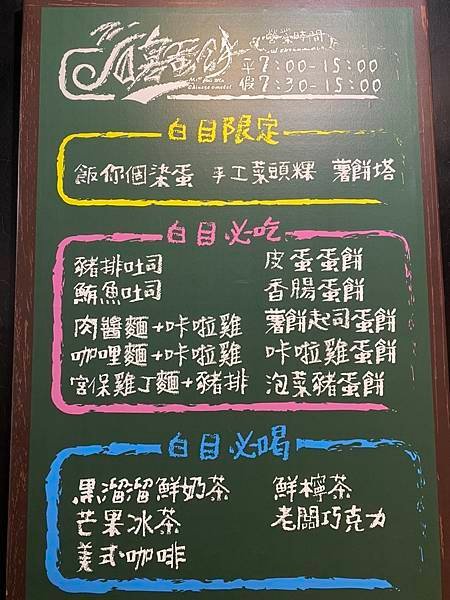 營業時間
平7:00-15:00
假7:30-15:00
白目限定
飯你個柒蛋 手工菜頭粿 薯餅塔
白目必吃
豬排吐司 皮蛋蛋餅
鮪魚吐司 香腸蛋餅
肉醬麵+咔啦雞 薯餅起司蛋餅
咖哩麵+咔啦雞 咔啦雞蛋餅
宮保雞丁麵+豬排 泡菜豬蛋餅
白目必喝
黑溜溜鮮奶茶 鮮檸茶
芒果冰茶 老闆巧克力
美式咖啡